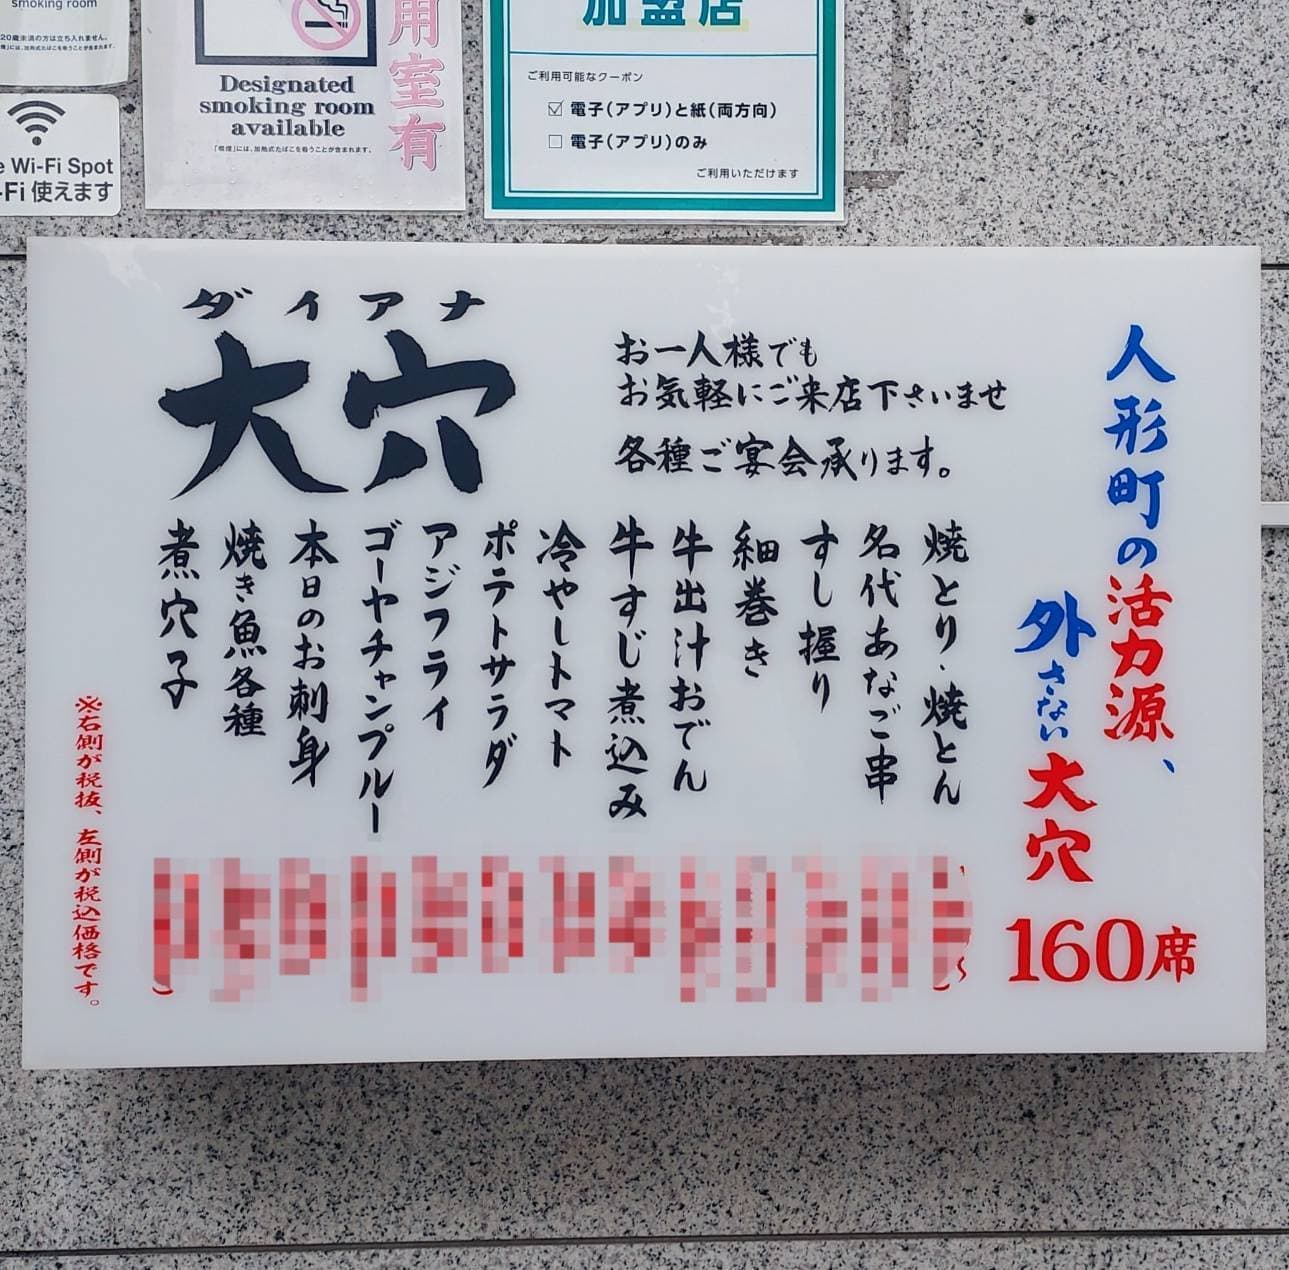 smoking room
20歳未満の方は立ち入れません。
Wi-Fi Spot
Fi 使えます
Designated
smoking room
available
「喫煙」には、加熱式たばこを吸うことが含まれます。
用室有
加盟店
ご利用可能なクーポン
☑ 電子(アプリ)と紙(両方向)
☐ 電子(アプリ)のみ
ご利用いただけます
ダイアナ
大穴
お一人様でも
お気軽にご来店下さいませ
各種ご宴会承ります。
人形町の活力源、
外さない大穴
160席
焼とり・焼とん
名代あなご串
すし握り
細巻き
牛出汁おでん
牛すじ煮込み
冷やしトマト
ポテトサラダ
アジフライ
ゴーヤチャンプルー
本日のお刺身
焼き魚各種
煮穴子
※右側が税抜、左側が税込価格です。